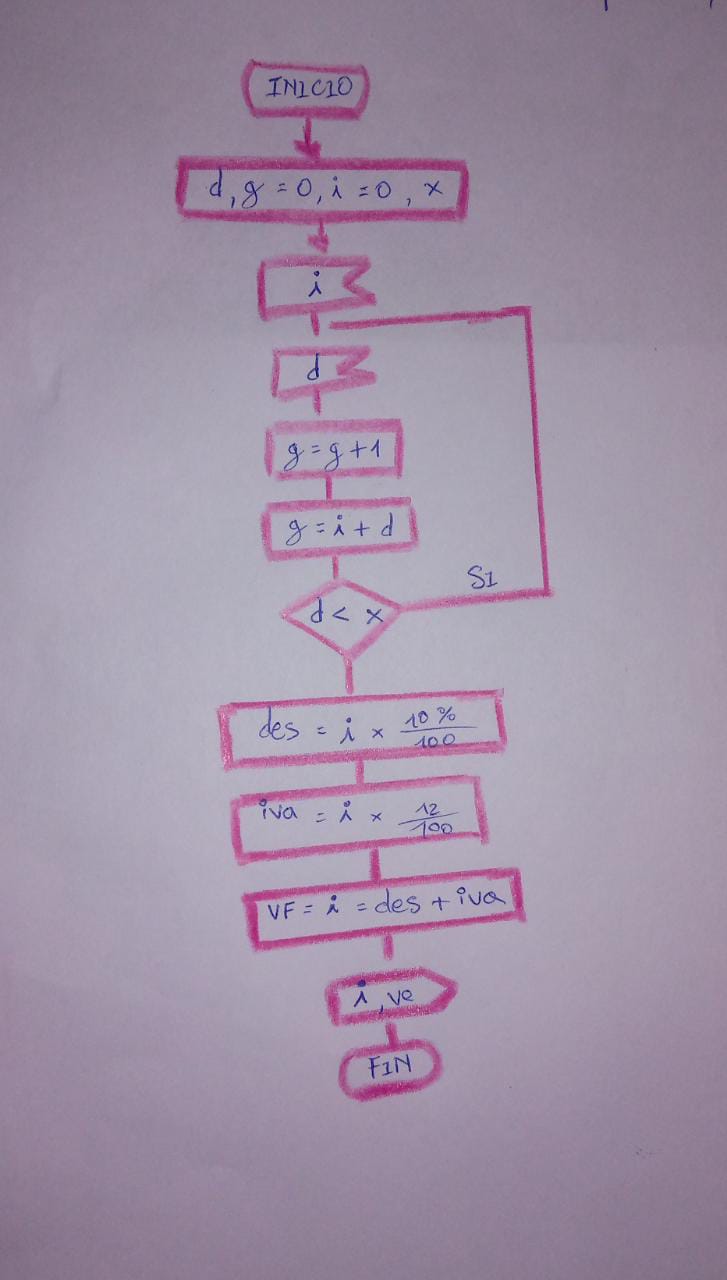 INICIO
d, g = 0, i = 0, x
i
d
g = g + 1
g = i + d
d < x
SI
des = i x 10% / 100
iva = i x 12 / 100
VF = i = des + iva
i, ve
FIN